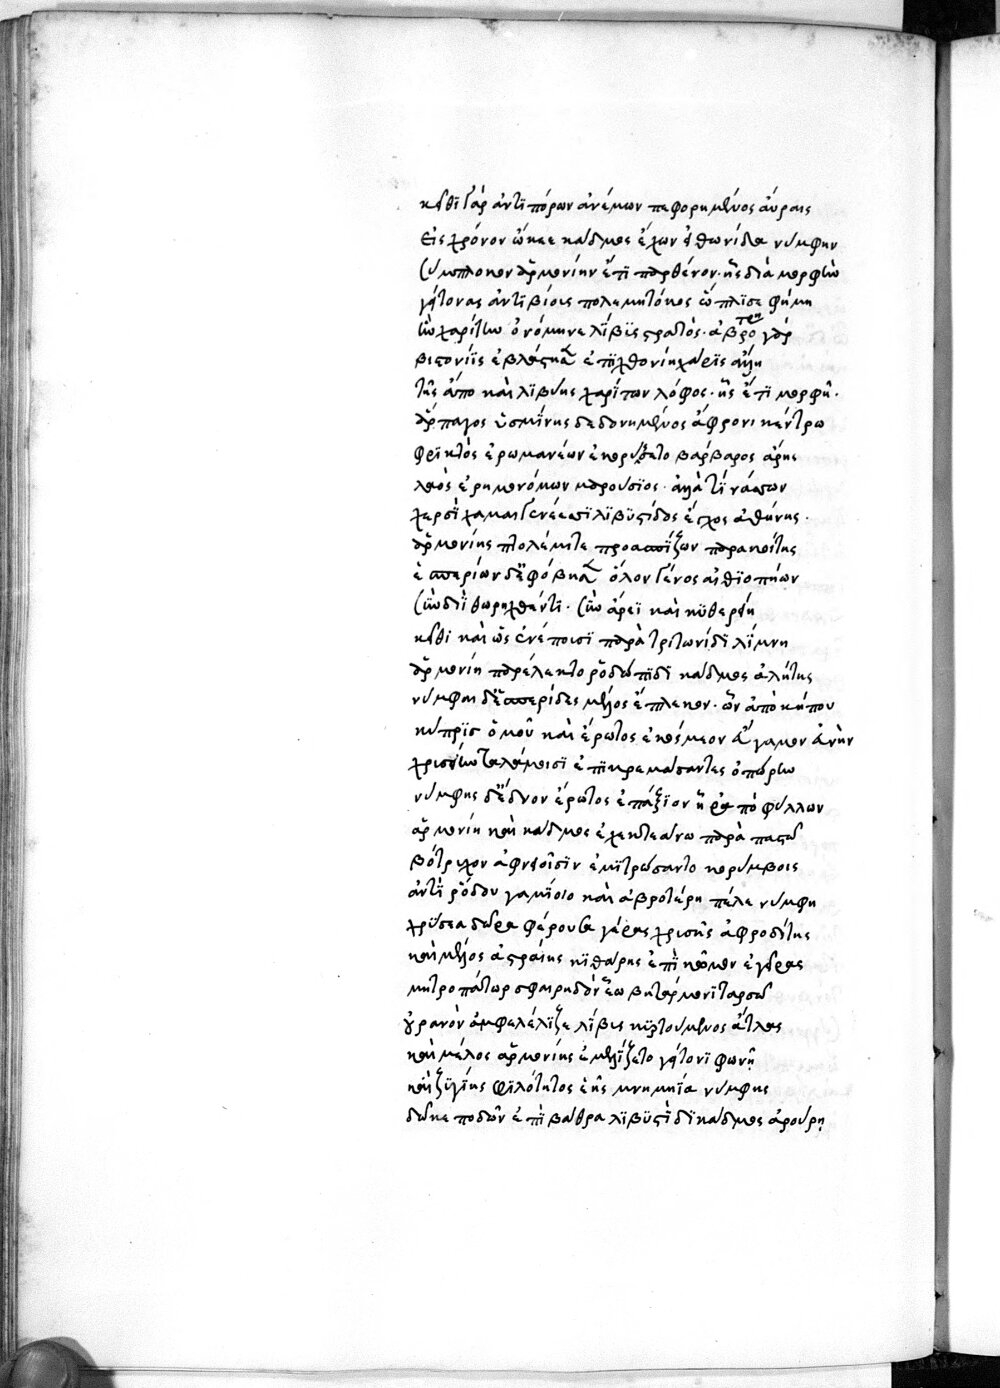 κεῖθι γὰρ ἀντιπόρων ἀνέμων πεφορημένος αὔραις
εἰς χρόνον ὤκεε κάδμος ἔχων σιθωνίδα νύμφην
σύμπλοκον ἁρμονίην ἔτι παρθένον· ἧς διὰ μορφὴν
γείτονας ἀντιβίοις πολεμητόκος ὥπλισε φήμη
τὴν χαρίτην ὀνόμηνε λίβυς στρατός· ἁβροτέρη γὰρ
βιστονίις ἐβλάστησεν ἐπιχθονίη χάρις ἄλλη
τῆς ἄπο καὶ λιβύης χαρίτων λόφος· ἧς ἔτι μορφῆ·
ἅρπαγος ὑσμίνης δεδονημένος ἄφρονι κέντρω
φρικτὸς ἐρωμανέων ἐκορύσσετο βάρβαρος ἄρης
λαὸς ἐρημονόμων μαρούσιος· ἀλλὰ τινάσσων
χερσὶ χαμαιγενέεσσι λιβυστίδος ἔγχος ἀθήνης·
ἁρμονίης πτολέμιζε προασπίζων παρακοίτης
ἑσπερίων δ' ἐφόβησεν ὅλον γένος αἰθιοπήων
σὺν διὶ θωρηχθέντι· σὺν ἄρεϊ καὶ κυθερείη
κεῖθι καὶ ὡς ἐνέποισι παρὰ τριτωνίδι λίμνη
ἁρμονίη παρέλεκτο ῥοδώπιδι κάδμος ἀλήτης
νύμφαι δ' ἑσπερίδες μέλος ἔπλεκον· ὧν ἀπὸ κήπου
κύπρις ὁμοῦ καὶ ἔρωτος ἐκόσμεον γάμον
χρυσείην θαλάμοισι ἐπικρεμάσαντες ὀπώρην
νύμφης δ' ἕδνον ἔρωτος ἐπάξιον ἦρα πὸ φύλλων
ἁρμονίη καὶ κάδμος ἐχεκτεάνω παρὰ παστῶ
βότρυχον ἀφνειοῖσιν ἐμιτρώσαντο κορύμβοις
ἀντὶ ῥόδου γαμίοιο καὶ ἁβροτέρη πέλε νύμφη
χρύσεα δῶρα φέρουσα γέρας χρυσῆς ἀφροδίτης
καὶ μέλος ἀστραίης κιθάρης ἐπὶ κῶμον ἐγείρας
μητροπάτωρ σφαιρηδὸν ἕω βητάρμονι ταρσῶ
οὐρανὸν ἀμφελέλιζε λίβυς κυρτούμενος ἄτλας
καὶ μέλος ἁρμονίης ἐμελίζετο γείτονι φωνῆ
καὶ ζυγίης φιλότητος ἑῆς μνημήϊα νύμφης
δῶκε ποδῶν ἐπὶ βάθρα λιβυστίδι κάδμος ἀρούρη